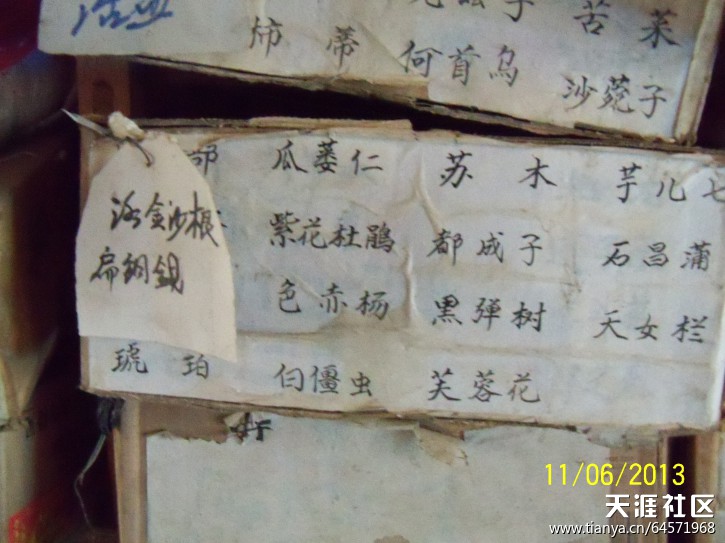 柿蒂 子 苦菜
何首乌 沙菀子
部 瓜蒌仁 苏木 芋儿七
紫花杜鹃 都成子 石昌蒲
色赤杨 黑弹树 天女栏
琥珀 白僵虫 芙蓉花
洛金沙根
扁钢钡
11/06/2013
天涯社区
www.tianya.cn/64571968